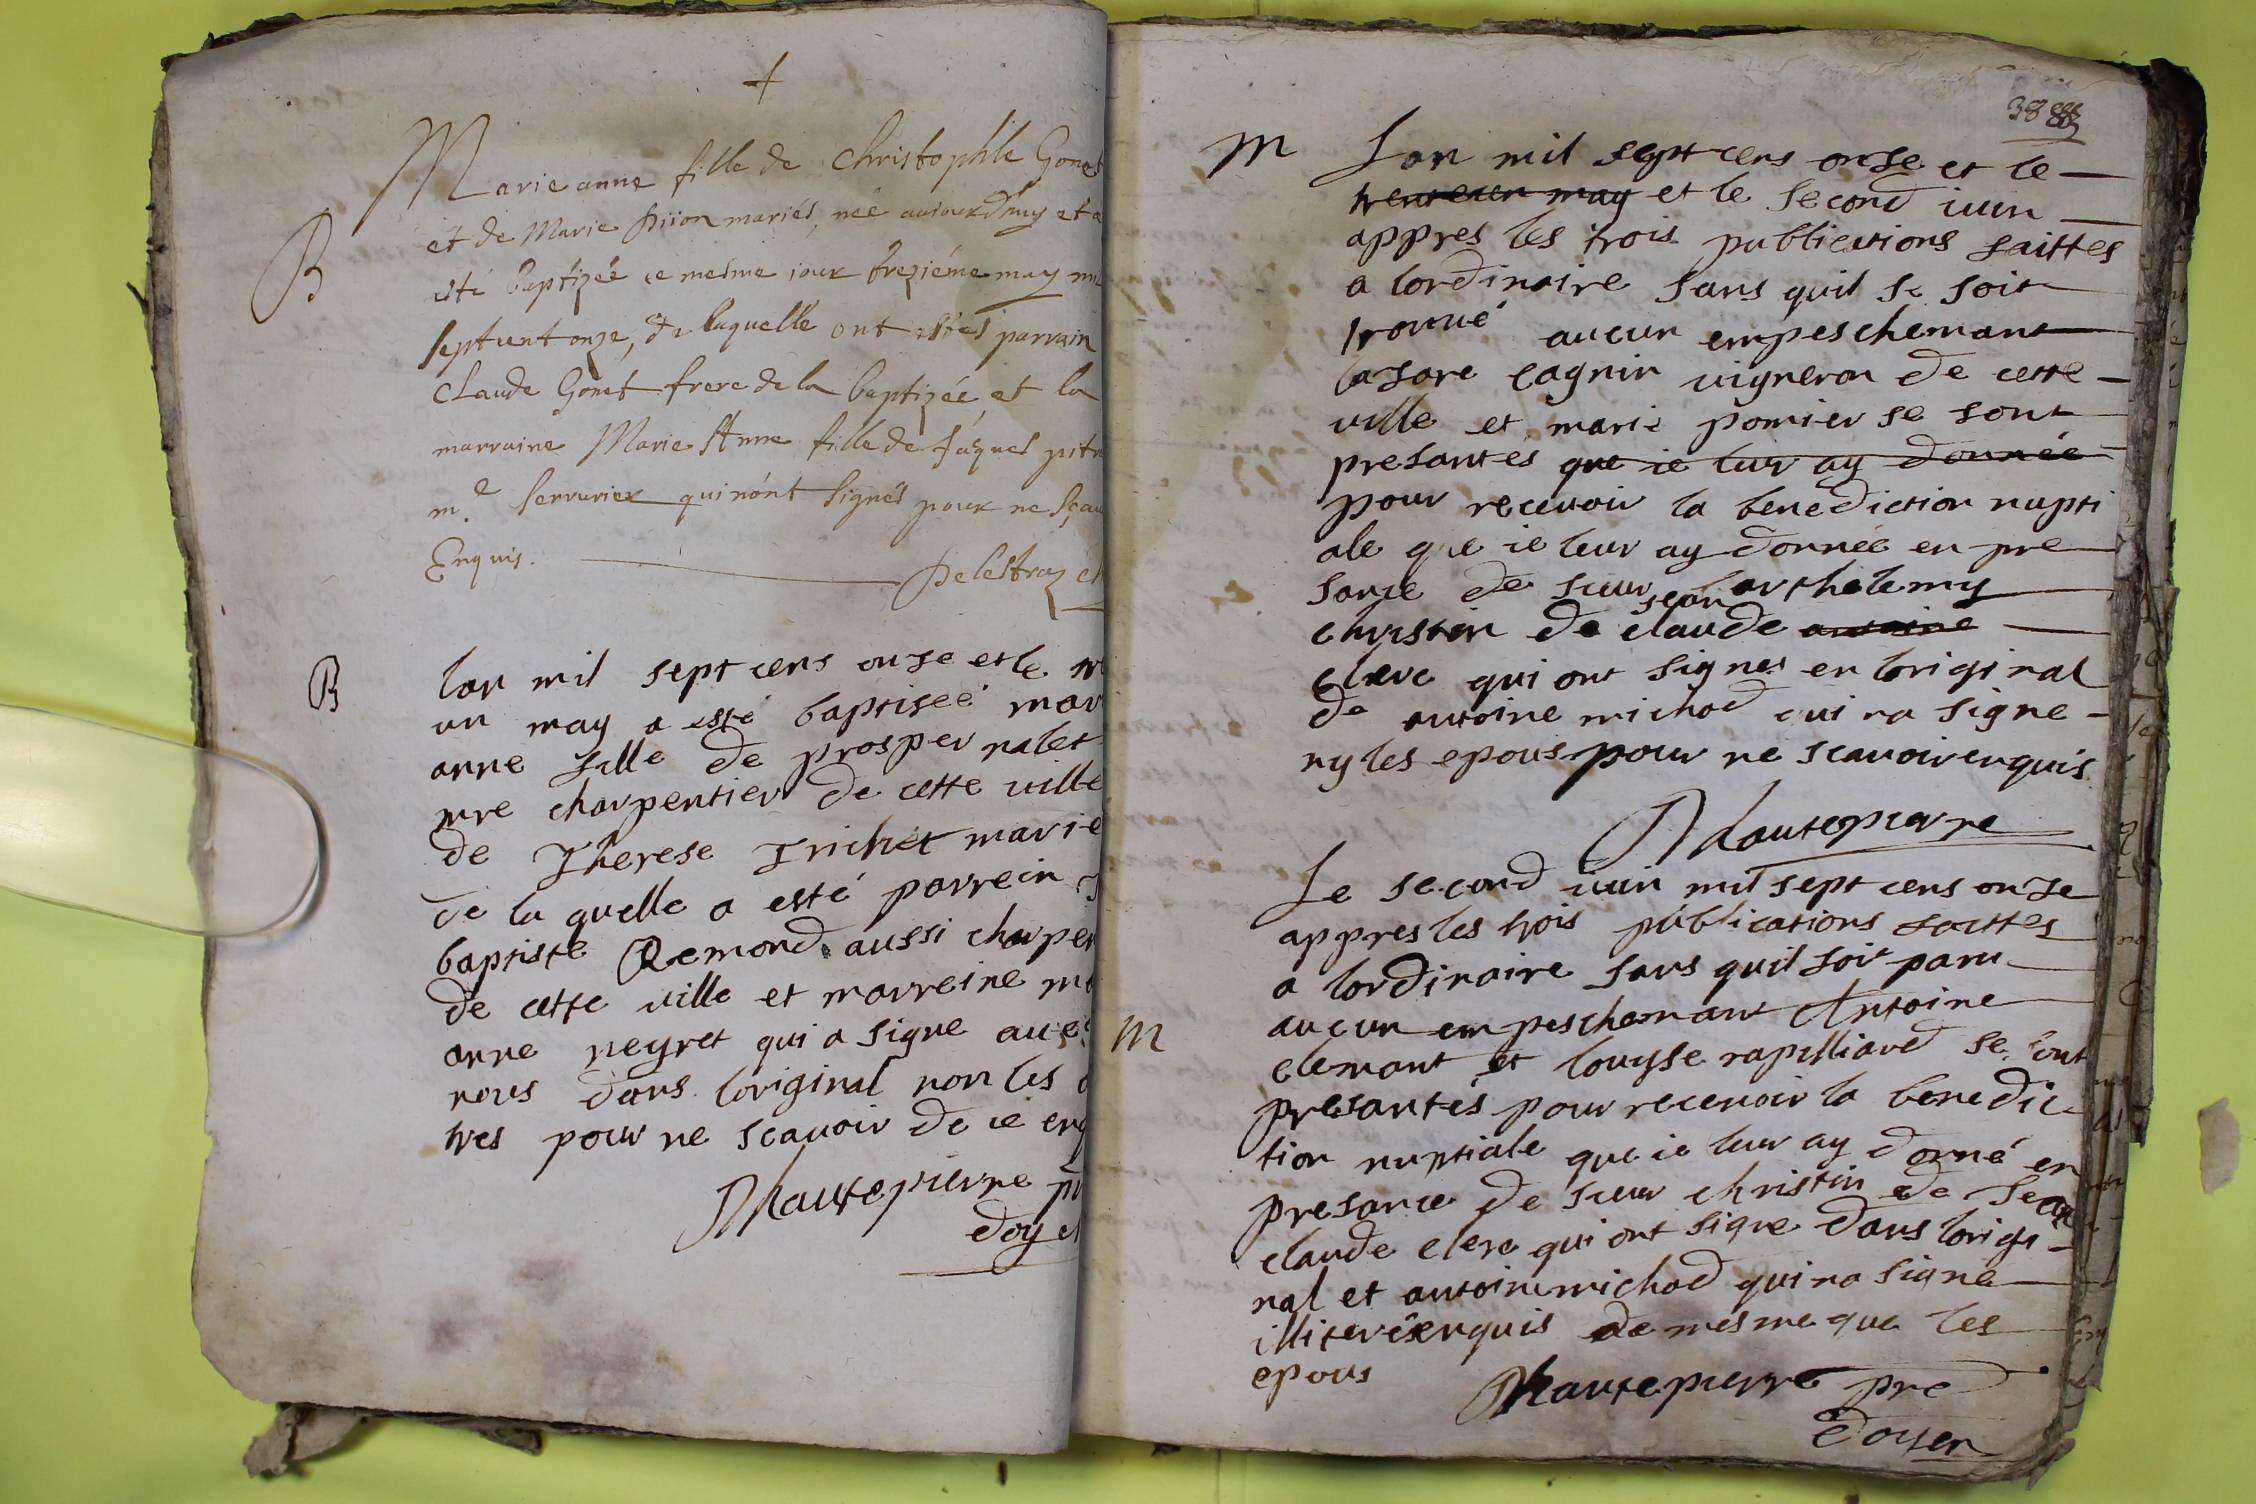 +
Marie anne fille de Christophle Gonet
B
et de Marie Piion mariés, née auiourdhuy et a
esté baptizée ce mesme iour trezième may mil
septcent onze, de laquelle ont estés parrain
Claude Gonet frere de la baptizée, et la
marraine Marie Anne fille de Jaques
m.e serrurier qui nónt signés pour ne sçau
Enquis.
B
lan mil sept cens onse et le
un may a esté baptiseé mar
anne fille de prosper nalet
mre charpentier de cette ville
de Therese Trichet marie
de la quelle a esté parrein J
baptiste Remond aussi charpen
de cette ville et marreine ma
anne neyret qui a signe auec
nous dans loriginal non les a
tres pour ne scauoir de ce enq
Hautepierre pr
doyen
38
M
Lan mil sept cens onse et le
trente un may et le second iuin
appres les trois publications faittes
a lordinaire sans quil se soit
trouué aucun empeschemant
lasare cagnin uigneron de cette
ville et marie pomier se sont
presantés que ie leur ay donnée
pour receuoir la benediction nupti
ale que ie leur ay donnée en pre
sance de sieur barthelemy
christin de jean claude antoine
clerc qui ont signes en loriginal
de antoine michod qui na signe
ny les epous pour ne scauoir enquis
Hautepierre
Le second iuin mil sept cens onse
appres les trois publications faittes
a lordinaire sans quil soit paru
M
aucun empeschemant Antoine
clemant et louysse rapilliard se sont
presantés pour receuoir la benedic
tion nuptiale que ie leur ay donné en
presance de sieur christin de Jean
claude clerc qui ont signe dans lorigi
nal et antoine michod qui na signé
illiteré enquis de mesme que les
epous
Hautepierre pre
doyen